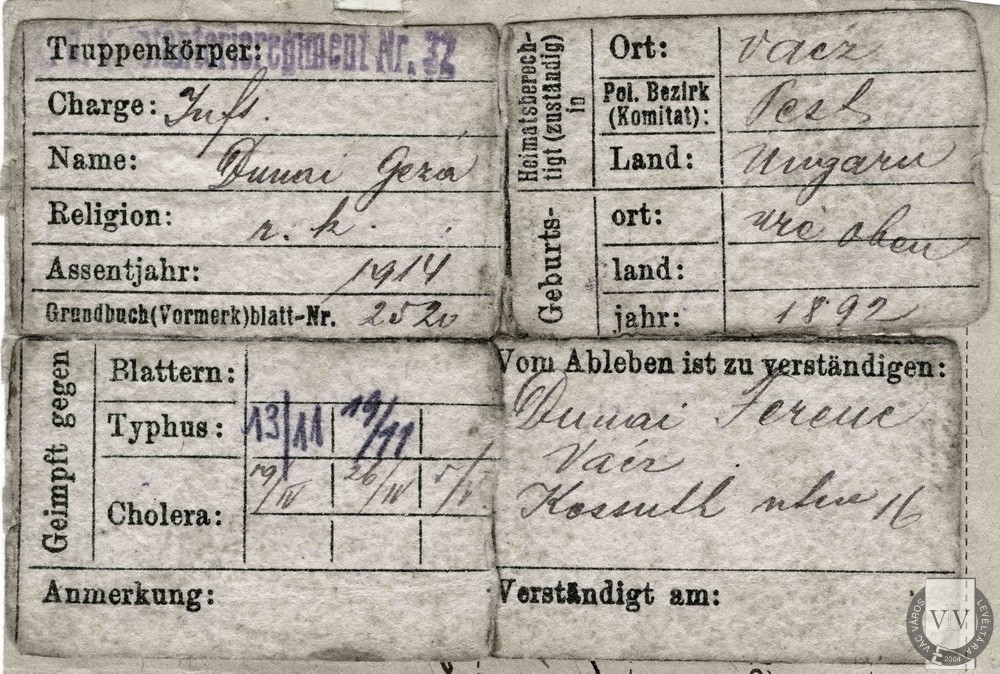 Truppenkörper: Infanterieregiment Nr. 32
Charge: Infst.
Name: Dunai Geza
Religion: r. k.
Assentjahr: 1914
Grundbuch(Vormerk)blatt-Nr. 2520
Heimatsberech-
tigt (zuständig)
in
Ort: Vácz
Pol. Bezirk
(Komitat): Pest
Land: Ungarn
Geburts-
ort: wie oben
land:
jahr: 1892
Geimpft gegen
Blattern:
Typhus: 13/11 19/11
Cholera: 19/IV 26/IV
Anmerkung:
Vom Ableben ist zu verständigen:
Dunai Ferenc
Vácz
Kossuth utca 16
Verständigt am:
VÁC VÁROS LEVÉLTÁRA
VV
2004